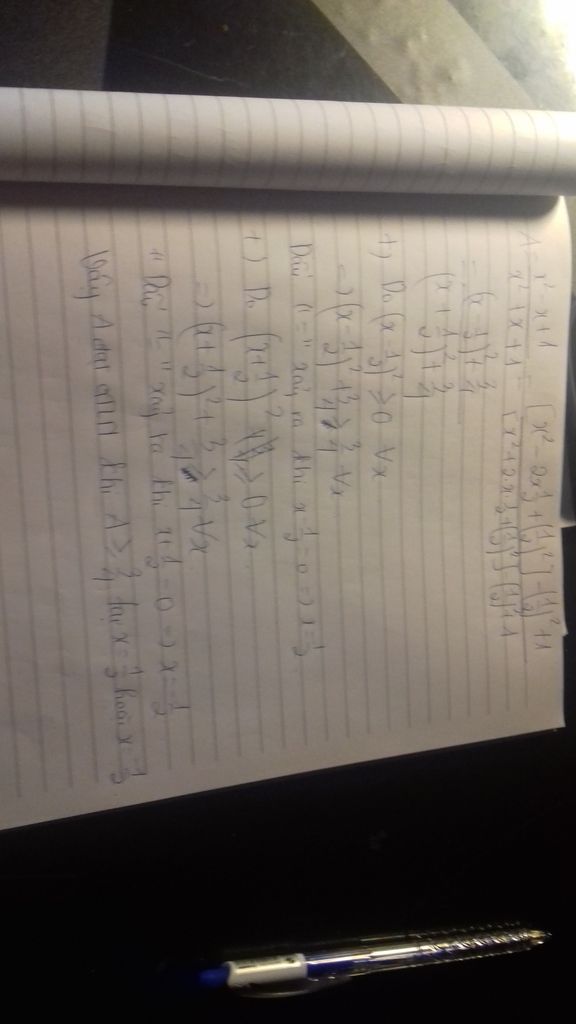 A = x² - x + 1 / x² + x + 1 = [x² - 2x 1/2 + (1/2)²] - (1/2)² + 1 / [x² + 2.x.1/2 + (1/2)²] - (1/2)² + 1
= (x - 1/2)² + 3/4 / (x + 1/2)² + 3/4
+) Do (x - 1/2)² ≥ 0 ∀x
=> (x - 1/2)² + 3/4 ≥ 3/4 ∀x
Dấu "=" xảy ra khi x - 1/2 = 0 => x = 1/2
+) Do (x + 1/2)² ≥ 0 ∀x
=> (x + 1/2)² + 3/4 ≥ 3/4 ∀x
" Dấu "=" xảy ra khi x + 1/2 = 0 => x = -1/2
Vậy A đạt GTNN khi A ≥ 3/4 tại x = 1/2 hoặc x = -1/2